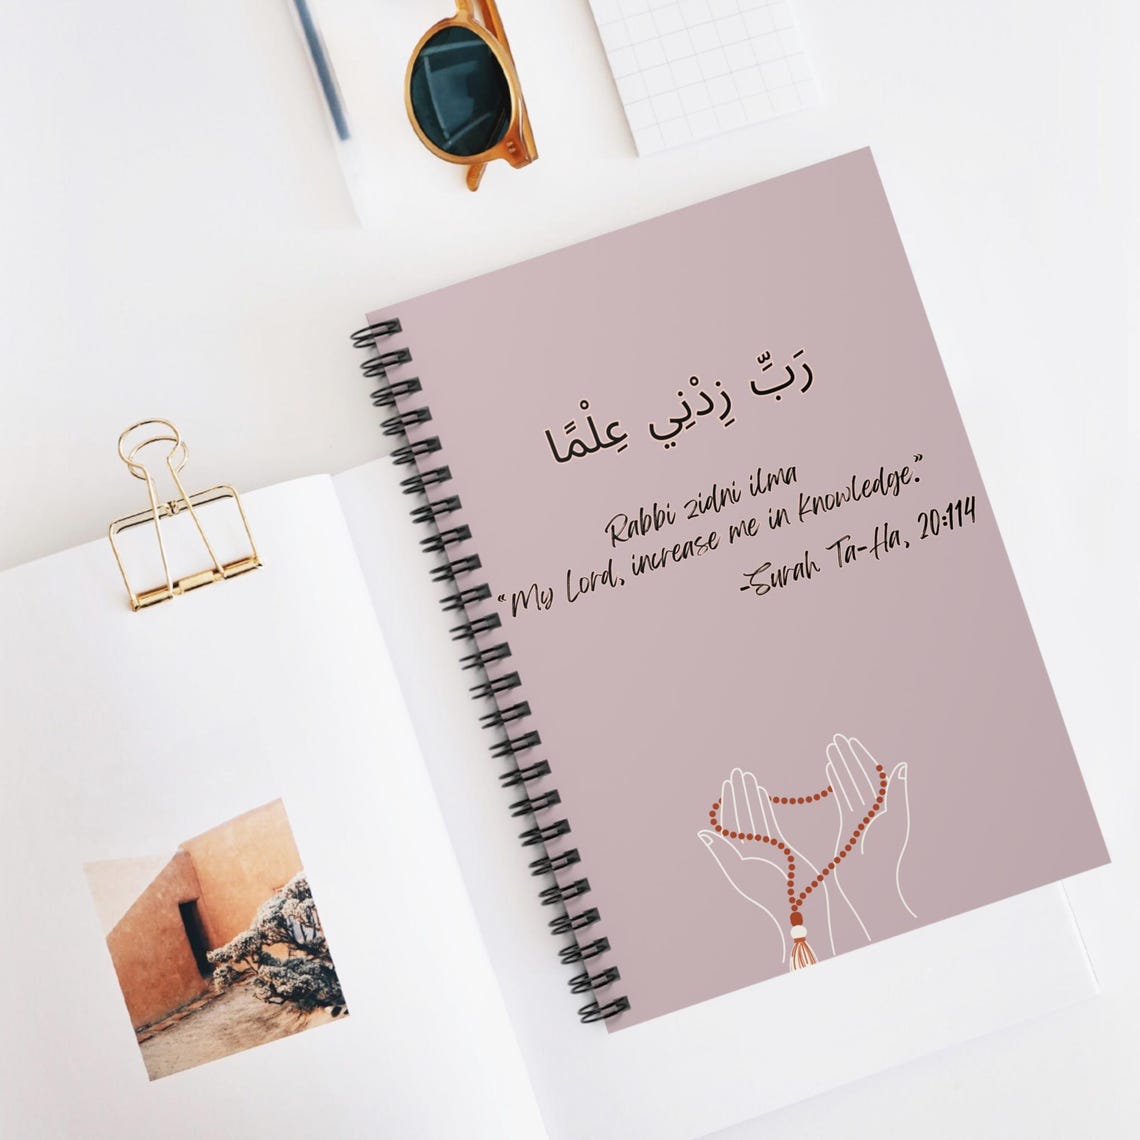 رَبِّ زِدْنِي عِلْمًا
Rabbi zidni ilma
“My Lord, increase me in knowledge.”
-Surah Ta-Ha, 20:114